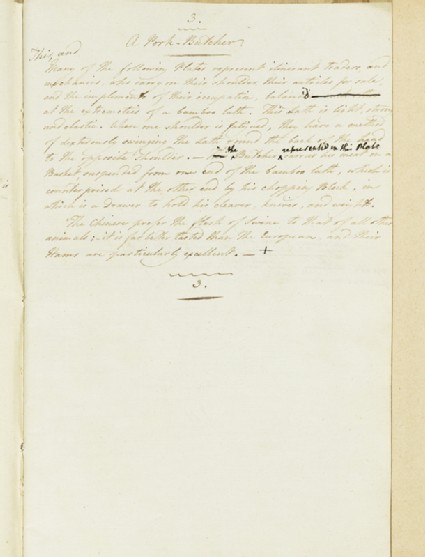 3.
A Pork-Butcher.
This, and
Many of the following Plates represent itinerant traders, and
mechanics, who carry on their shoulders their articles for sale,
and the implements of their occupation, balanced
at the extremities of a bamboo lath. This Lath is light, strong
and elastic. When one shoulder is fatigued, they have a method
of dexterously swinging the lath round the back of the head
to the opposite Shoulder. — the Butcher represented in this Plate carries his meat in a
Basket suspended from one end of the bamboo lath, which is
counterpoised at the other end by his chopping Block, in
which is a drawer to hold his cleaver, knives, and weights.
The Chinese prefer the flesh of Swine to that of all other
animals; it is far better tasted than the European, and their
Hams are particularly excellent. — +
3.